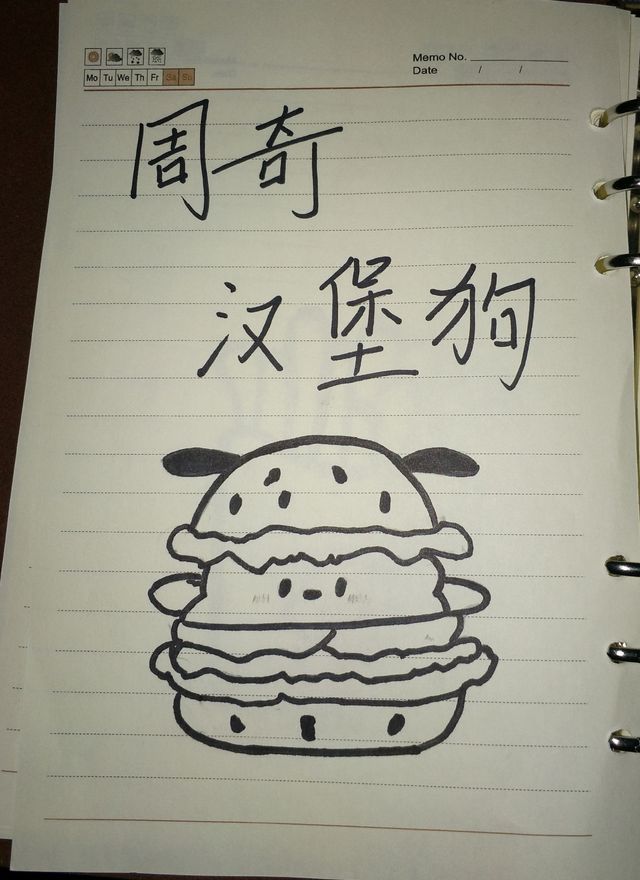 Memo No.
Mo Tu We Th Fr Sa Su
Date / /
周奇
汉堡狗